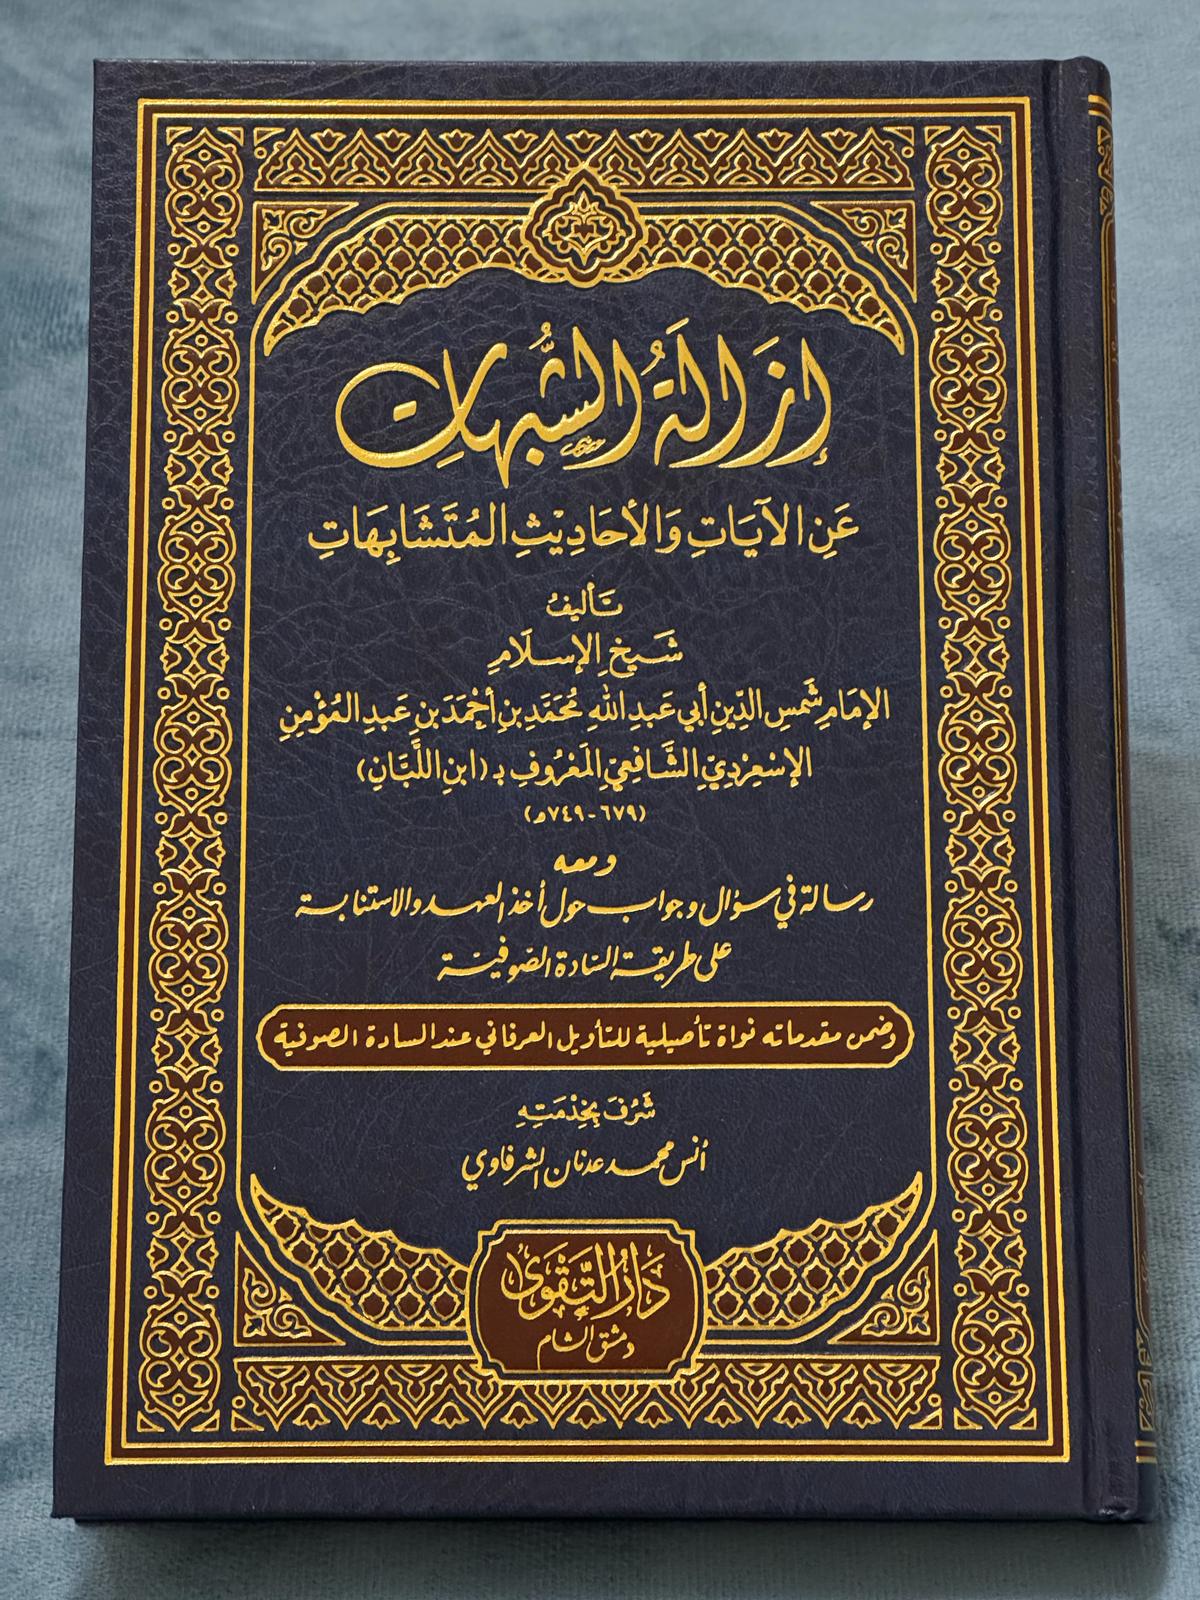 إِزَالَةُ الشُّبُهَاتِ
عَنِ الآيَاتِ وَالأَحَادِيْثِ المُتَشَابِهَاتِ
تَأليفُ
شَيخِ الإِسلَامِ
الإِمَامِ شَمسِ الدِّينِ أَبي عَبدِ اللهِ مُحَمَّدِ بنِ أَحْمَدَ بنِ عَبدِ المُؤْمِنِ
الإِسْعِرْدِيِّ الشَّافِعِيِّ المَعْرُوفِ بـ (ابنِ اللَّبَّانِ)
(٦٧٩-٧٤٩هـ)
ومعه
رسالة في سؤال وجواب حول أخذ العهد والاستنابة
على طريقة السّادة الصّوفيّة
وضمن مقدماته نواة تأصيلية للتأويل العرفاني عند السادة الصوفية
شَرُفَ بِخِدْمَتِهِ
أنس محمد عدنان الشرفاوي
دَارُ التَّقْوَى
دمشق الشام